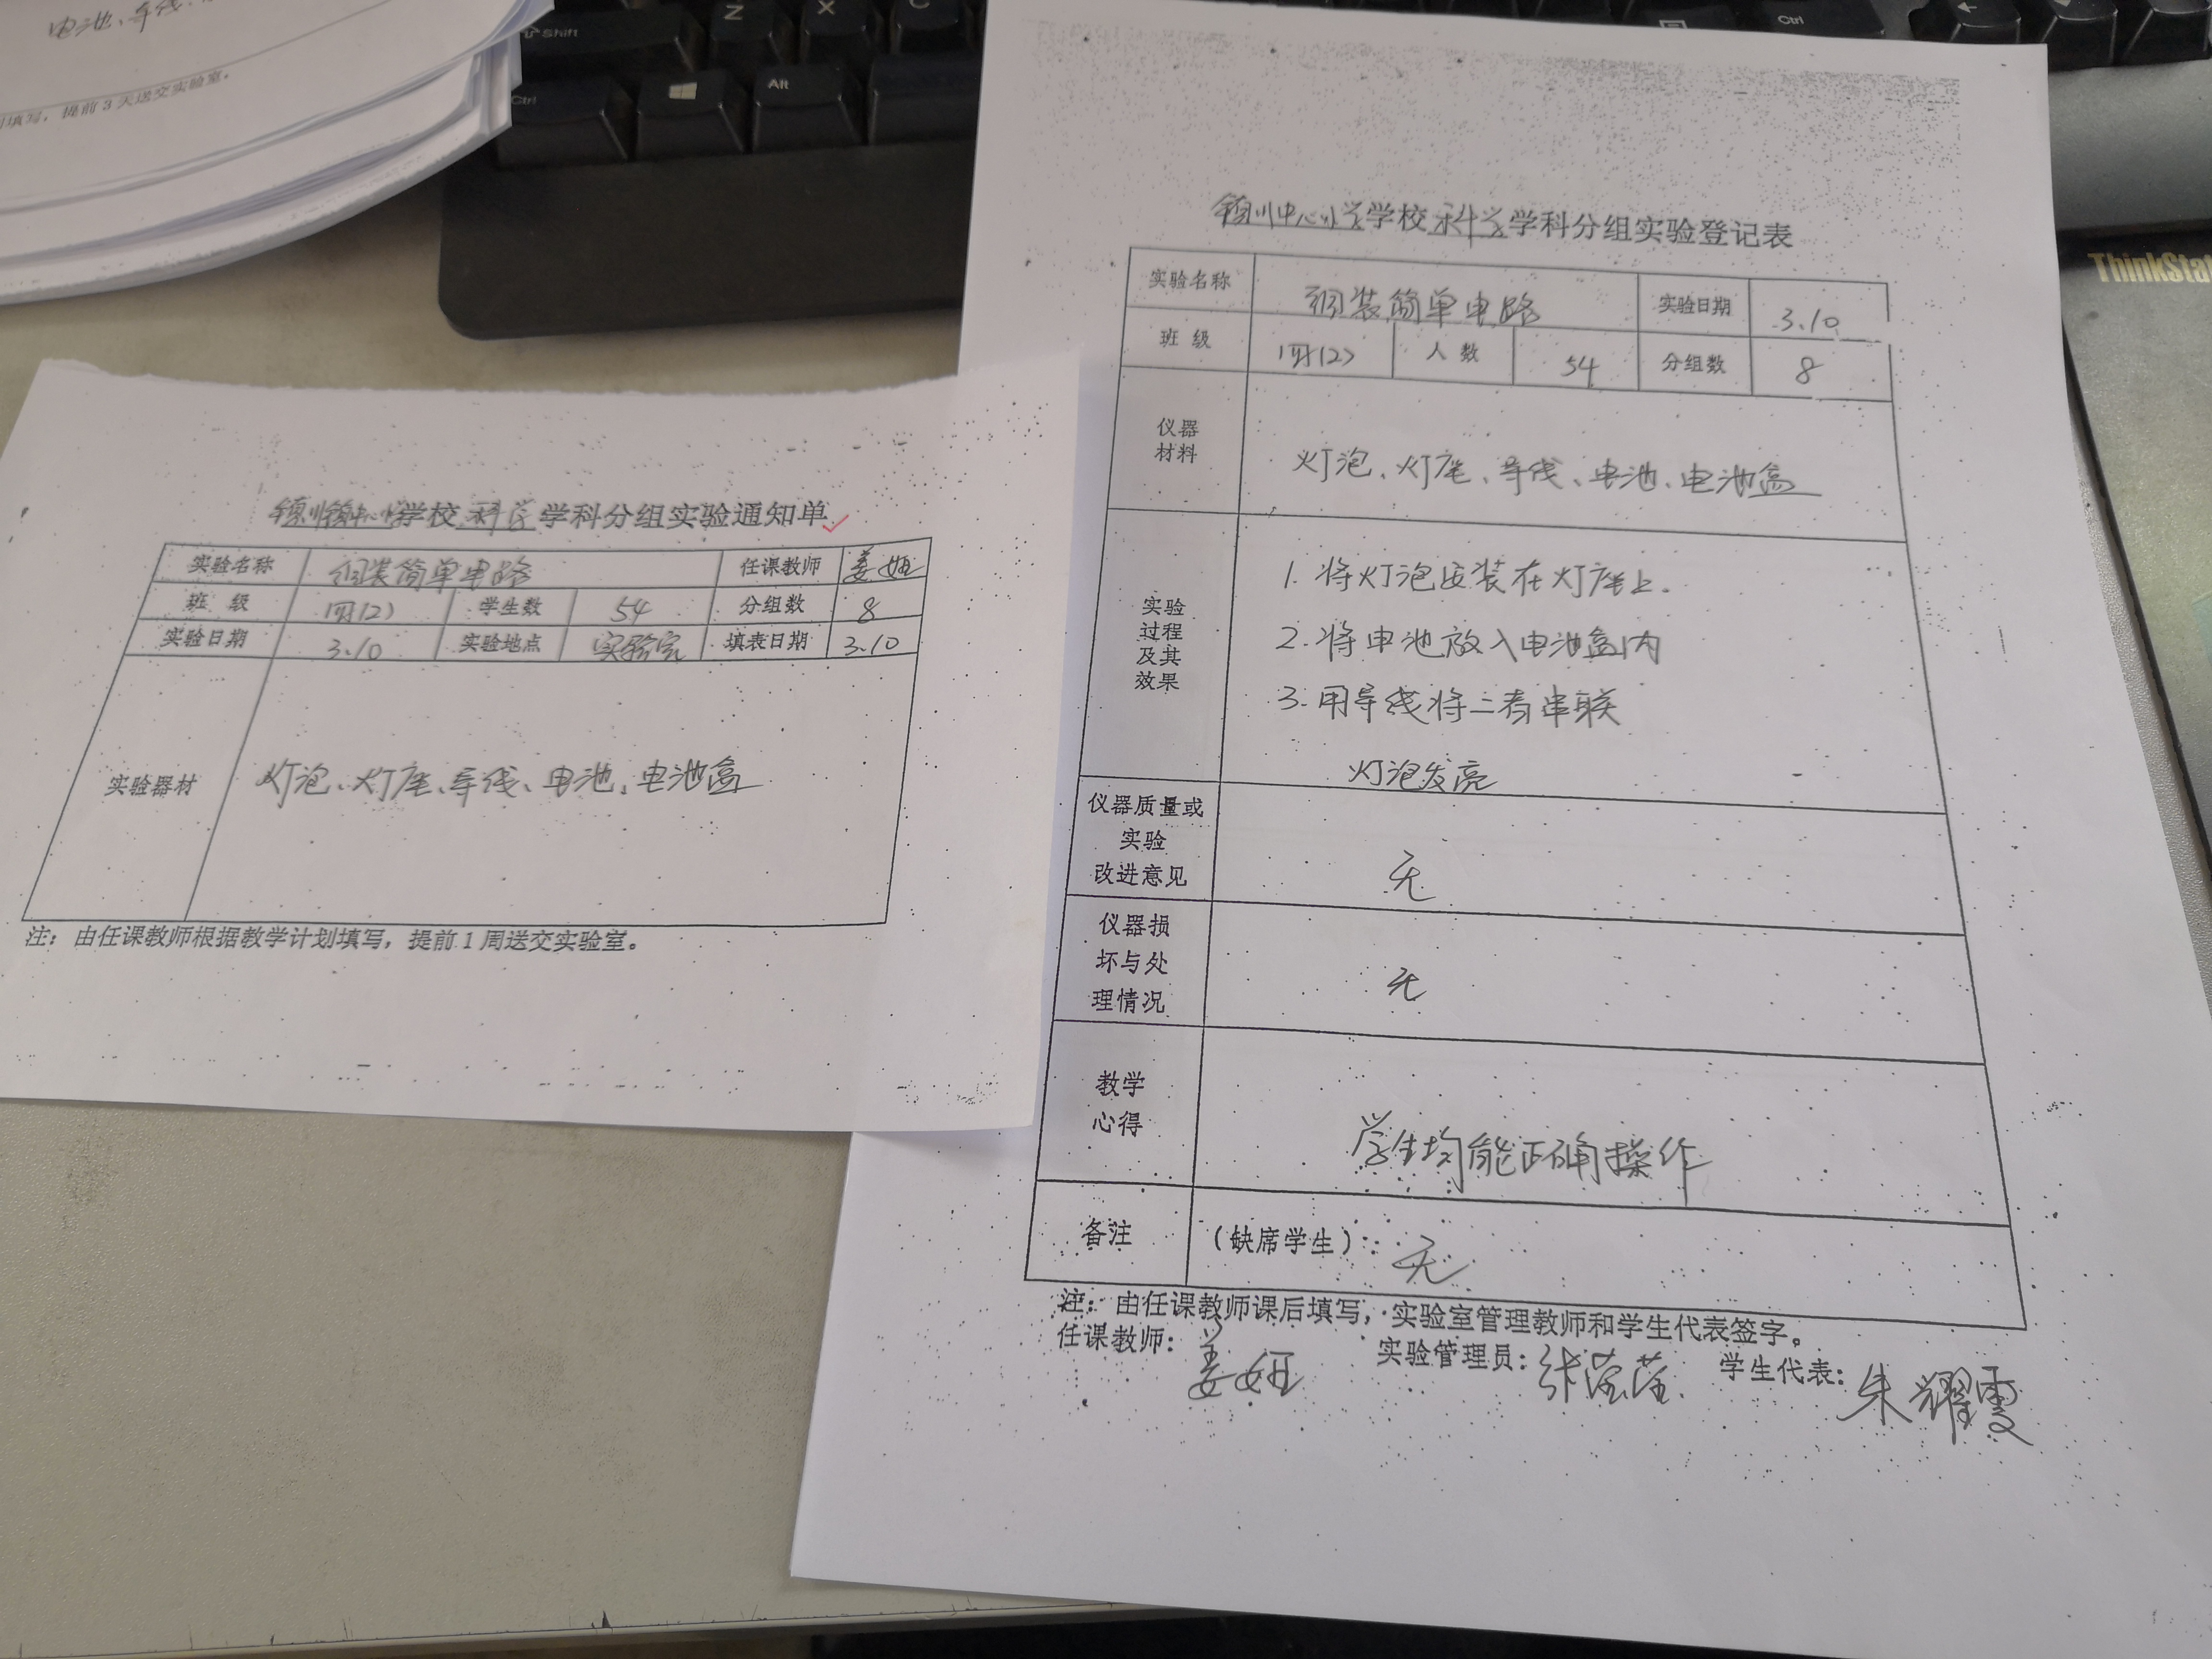 电池、导线、
填写，提前3天送交实验室。
Shift
Z
X
C
Ctrl
Alt
Ctrl
ThinkStat
学校 科学 学科分组实验通知单
实验名称 组装简单电路 任课教师 姜姬
班 级 四(2) 学生数 54 分组数 8
实验日期 3.10 实验地点 实验室 填表日期 3.10
实验器材 灯泡、灯座、导线、电池、电池盒
注：由任课教师根据教学计划填写，提前1周送交实验室。
中心小学学校 科学 学科分组实验登记表
实验名称 组装简单电路 实验日期 3.10
班 级 四(2) 人 数 54 分组数 8
仪器
材料
灯泡、灯座、导线、电池、电池盒
实验
过程
及其
效果
1. 将灯泡安装在灯座上.
2. 将电池放入电池盒内
3. 用导线将二者串联
灯泡发亮
仪器质量或
实验
改进意见
无
仪器损
坏与处
理情况
无
教学
心得
学生均能正确操作
备注 （缺席学生）：无
注：由任课教师课后填写，实验室管理教师和学生代表签字。
任课教师：姜姬 实验管理员：张莹莹 学生代表：朱耀雯